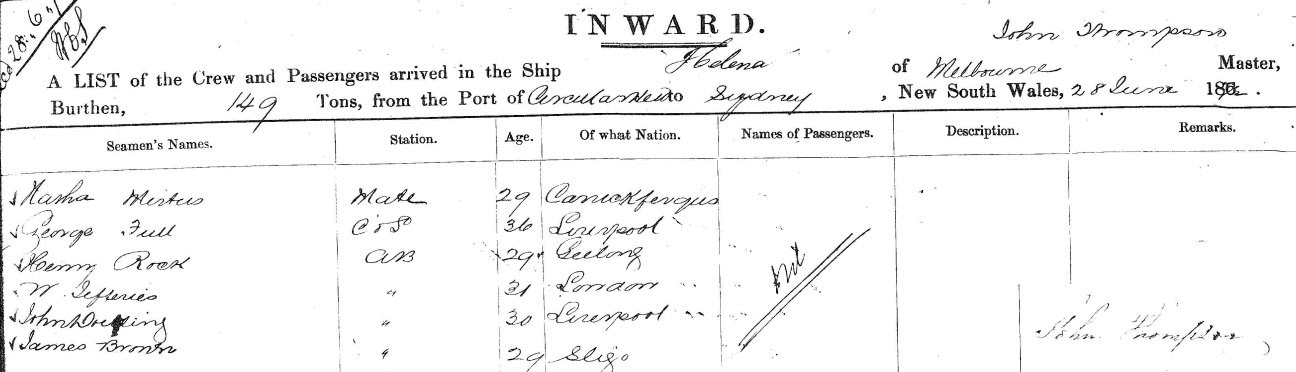 28. 6.
INWARD.
John Thompson
A LIST of the Crew and Passengers arrived in the Ship Helena of Melbourne Master,
Burthen, 149 Tons, from the Port of to Sydney , New South Wales, 28 June 187 .
Seamen's Names. Station. Age. Of what Nation. Names of Passengers. Description. Remarks.
Mate 29 Carrickfergus
George Full C & S 36 Liverpool
Henry Rock AB 29 Geelong
W. Jefferies " 31 London
John " 30 Liverpool
James Brown " 29 Sligo
Nil
John Thompson